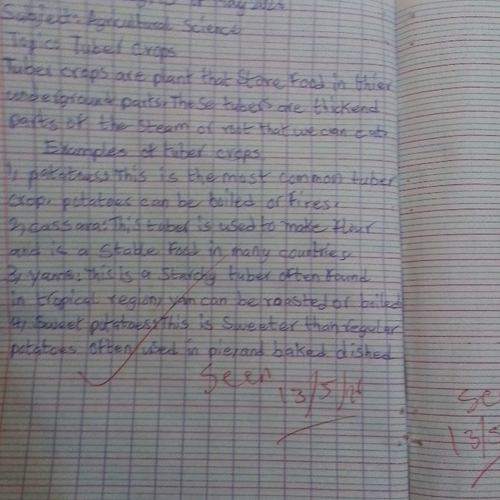 of May 2026
Subject: Agricultural Science
Topic: Tuber Crops
Tuber crops are plant that store food in thier
underground parts. These tubers are thickend
parts of the steam or root that we can eat.
Examples of tuber crops
1, potatoes: This is the most common tuber
crop, potatoes can be boiled or fires.
2, cassara: This tuber is used to make flour
and is a stable food in many countries.
3, yams: This is a starchy tuber often found
in tropical region, yam can be roasted or boiled
4, Sweet potatoes: This is sweeter than regular
potatoes often used in pie, and baked dished
Seen
13/5/26
Se
13/5